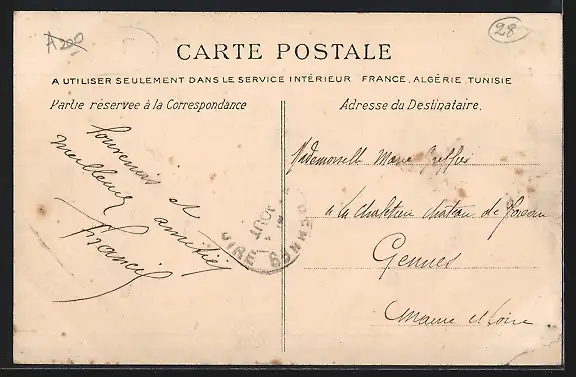 A200
28
CARTE POSTALE
A UTILISER SEULEMENT DANS LE SERVICE INTÉRIEUR FRANCE, ALGÉRIE, TUNISIE
Partie réservée à la Correspondance
Adresse du Destinataire.
Souvenirs et
meilleures amitiés
Francis
Mademoiselle Marie
à la
château de
Gennes
Maine et Loire
GENNES
AOUT